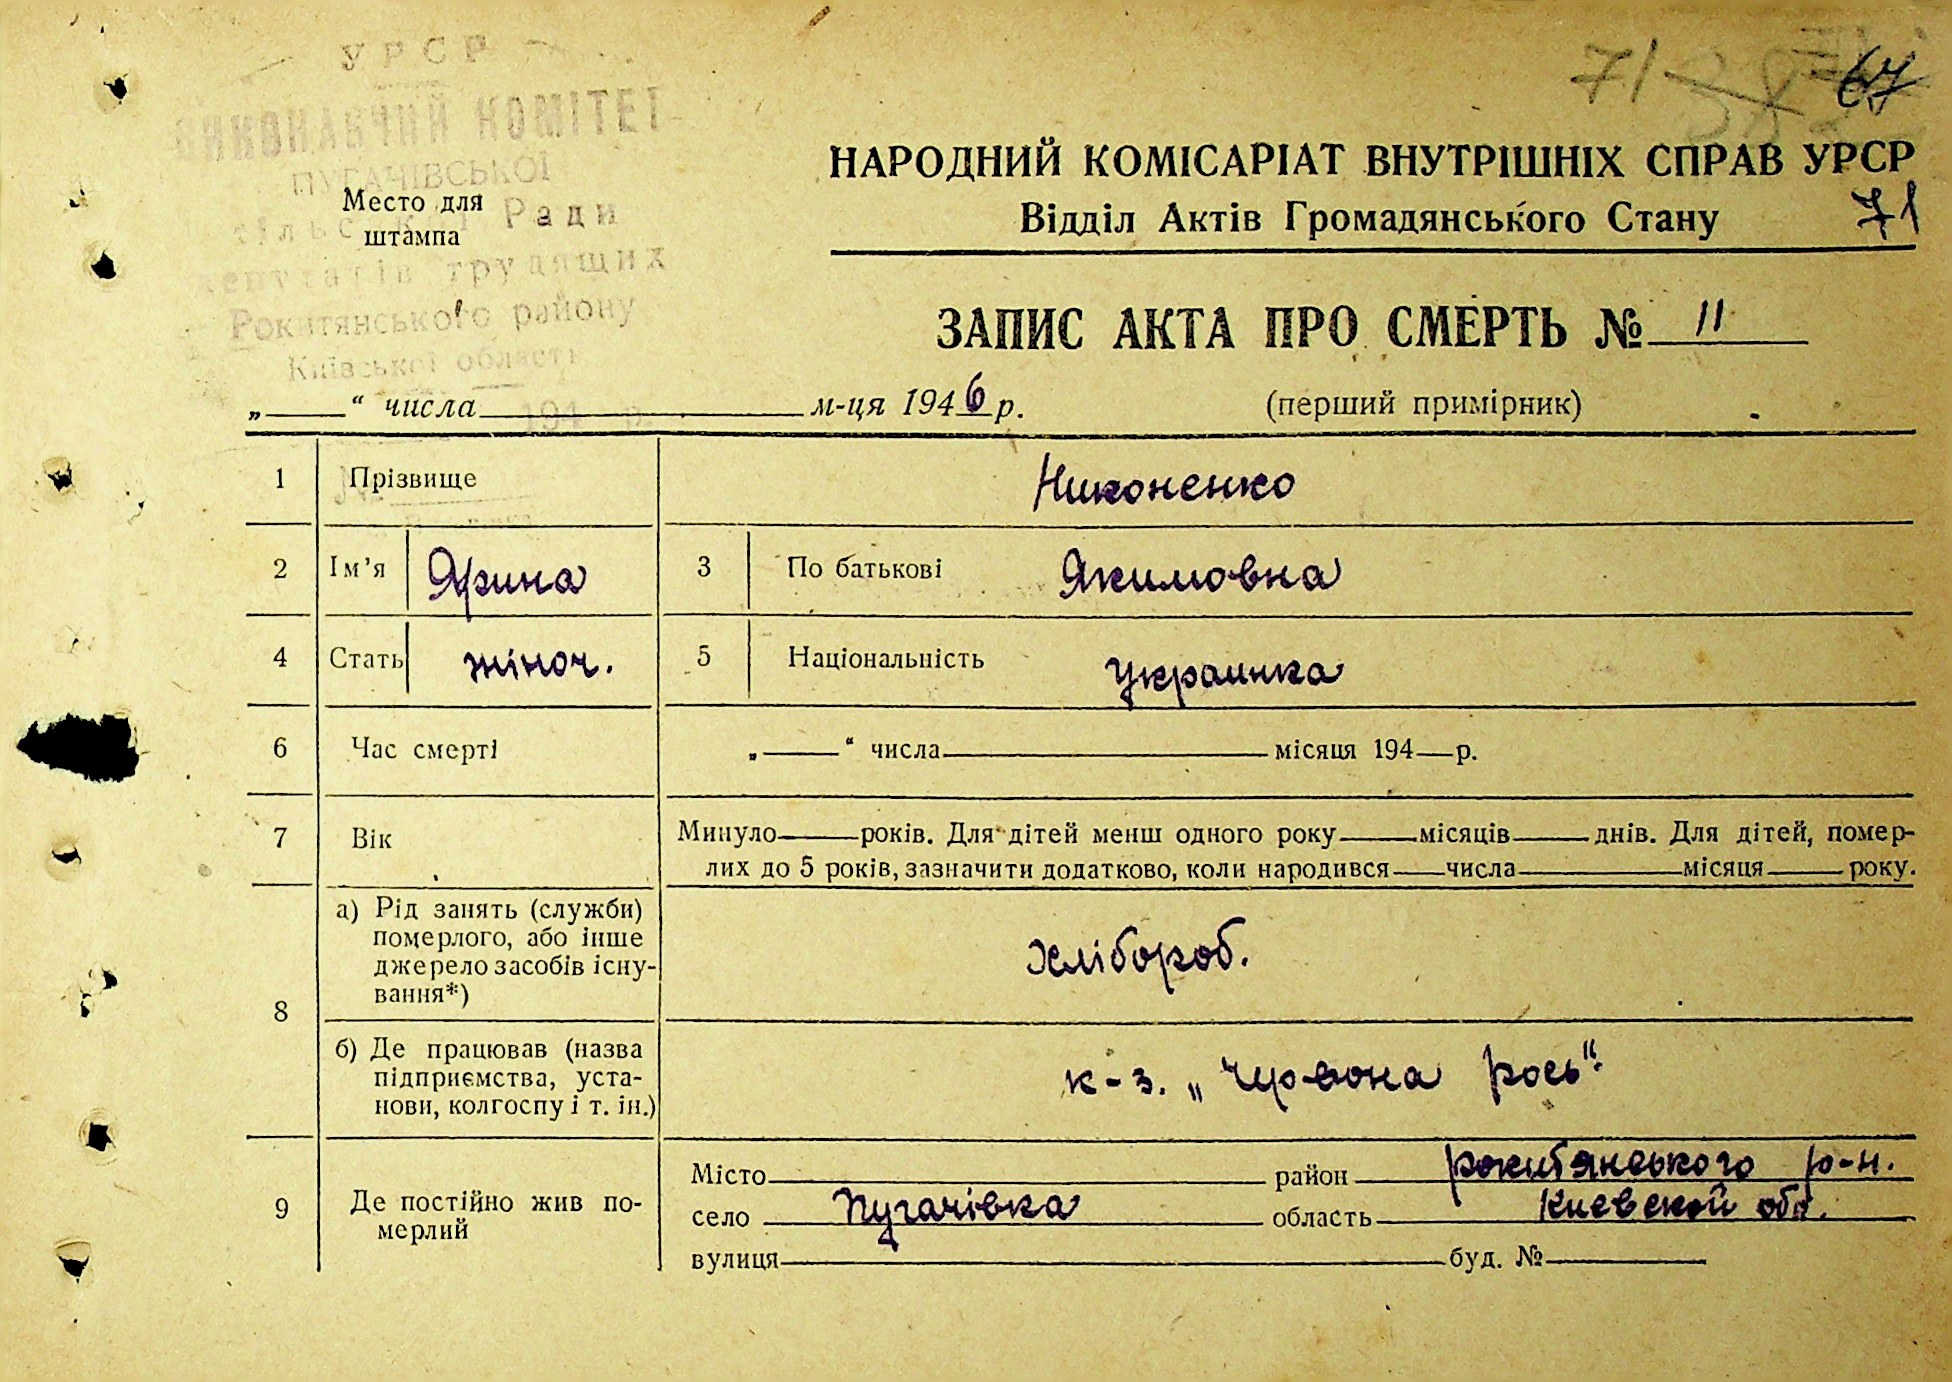 УРСР
ВИКОНАВЧИЙ КОМІТЕТ
ПУГАЧІВСЬКОЇ
Сільської Ради
депутатів трудящих
Рокитянського району
Київської області
194 р.
Место для
штампа
71
67
НАРОДНИЙ КОМІСАРІАТ ВНУТРІШНІХ СПРАВ УРСР
Відділ Актів Громадянського Стану 71
ЗАПИС АКТА ПРО СМЕРТЬ № 11
„ “ числа м-ця 1946 р. (перший примірник)
1 Прізвище Никоненко
2 Ім’я Ярина 3 По батькові Якимовна
4 Стать жіноч. 5 Національність украинка
6 Час смерті „ “ числа місяця 194 р.
7 Вік Минуло років. Для дітей менш одного року місяців днів. Для дітей, помер-
лих до 5 років, зазначити додатково, коли народився числа місяця року.
8
а) Рід занять (служби)
померлого, або інше
джерело засобів існу-
вання*)
хлібороб.
б) Де працював (назва
підприємства, уста-
нови, колгоспу і т. ін.)
к-з. „Червона рось“.
9 Де постійно жив по-
мерлий
Місто район рокитянського р-н.
село Пугачівка область Киевской обл.
вулиця буд. №